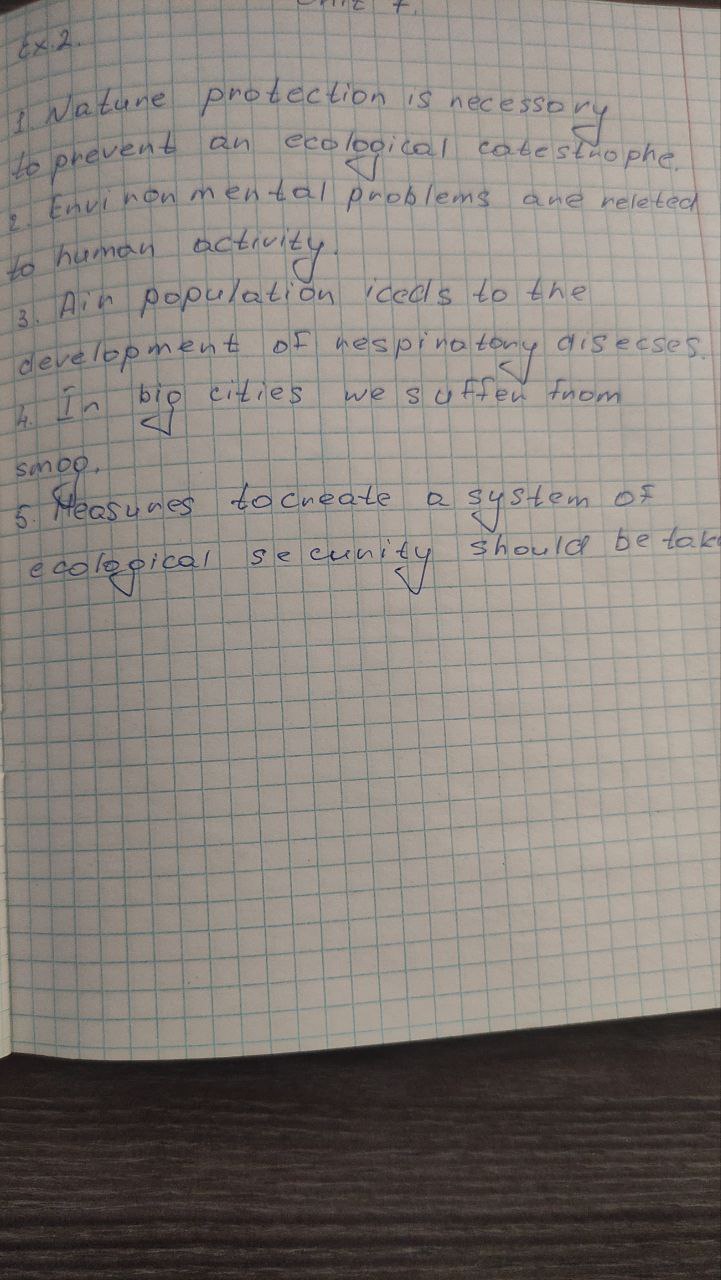 Unit 7.
Ex. 2.
1. Nature protection is necessary
to prevent an ecological catestrophe.
2. Environmental problems are releted
to human activity.
3. Air population iceds to the
development of respiratory disecses.
4. In big cities we suffer from
smog.
5. Measures to create a system of
ecological security should be tak